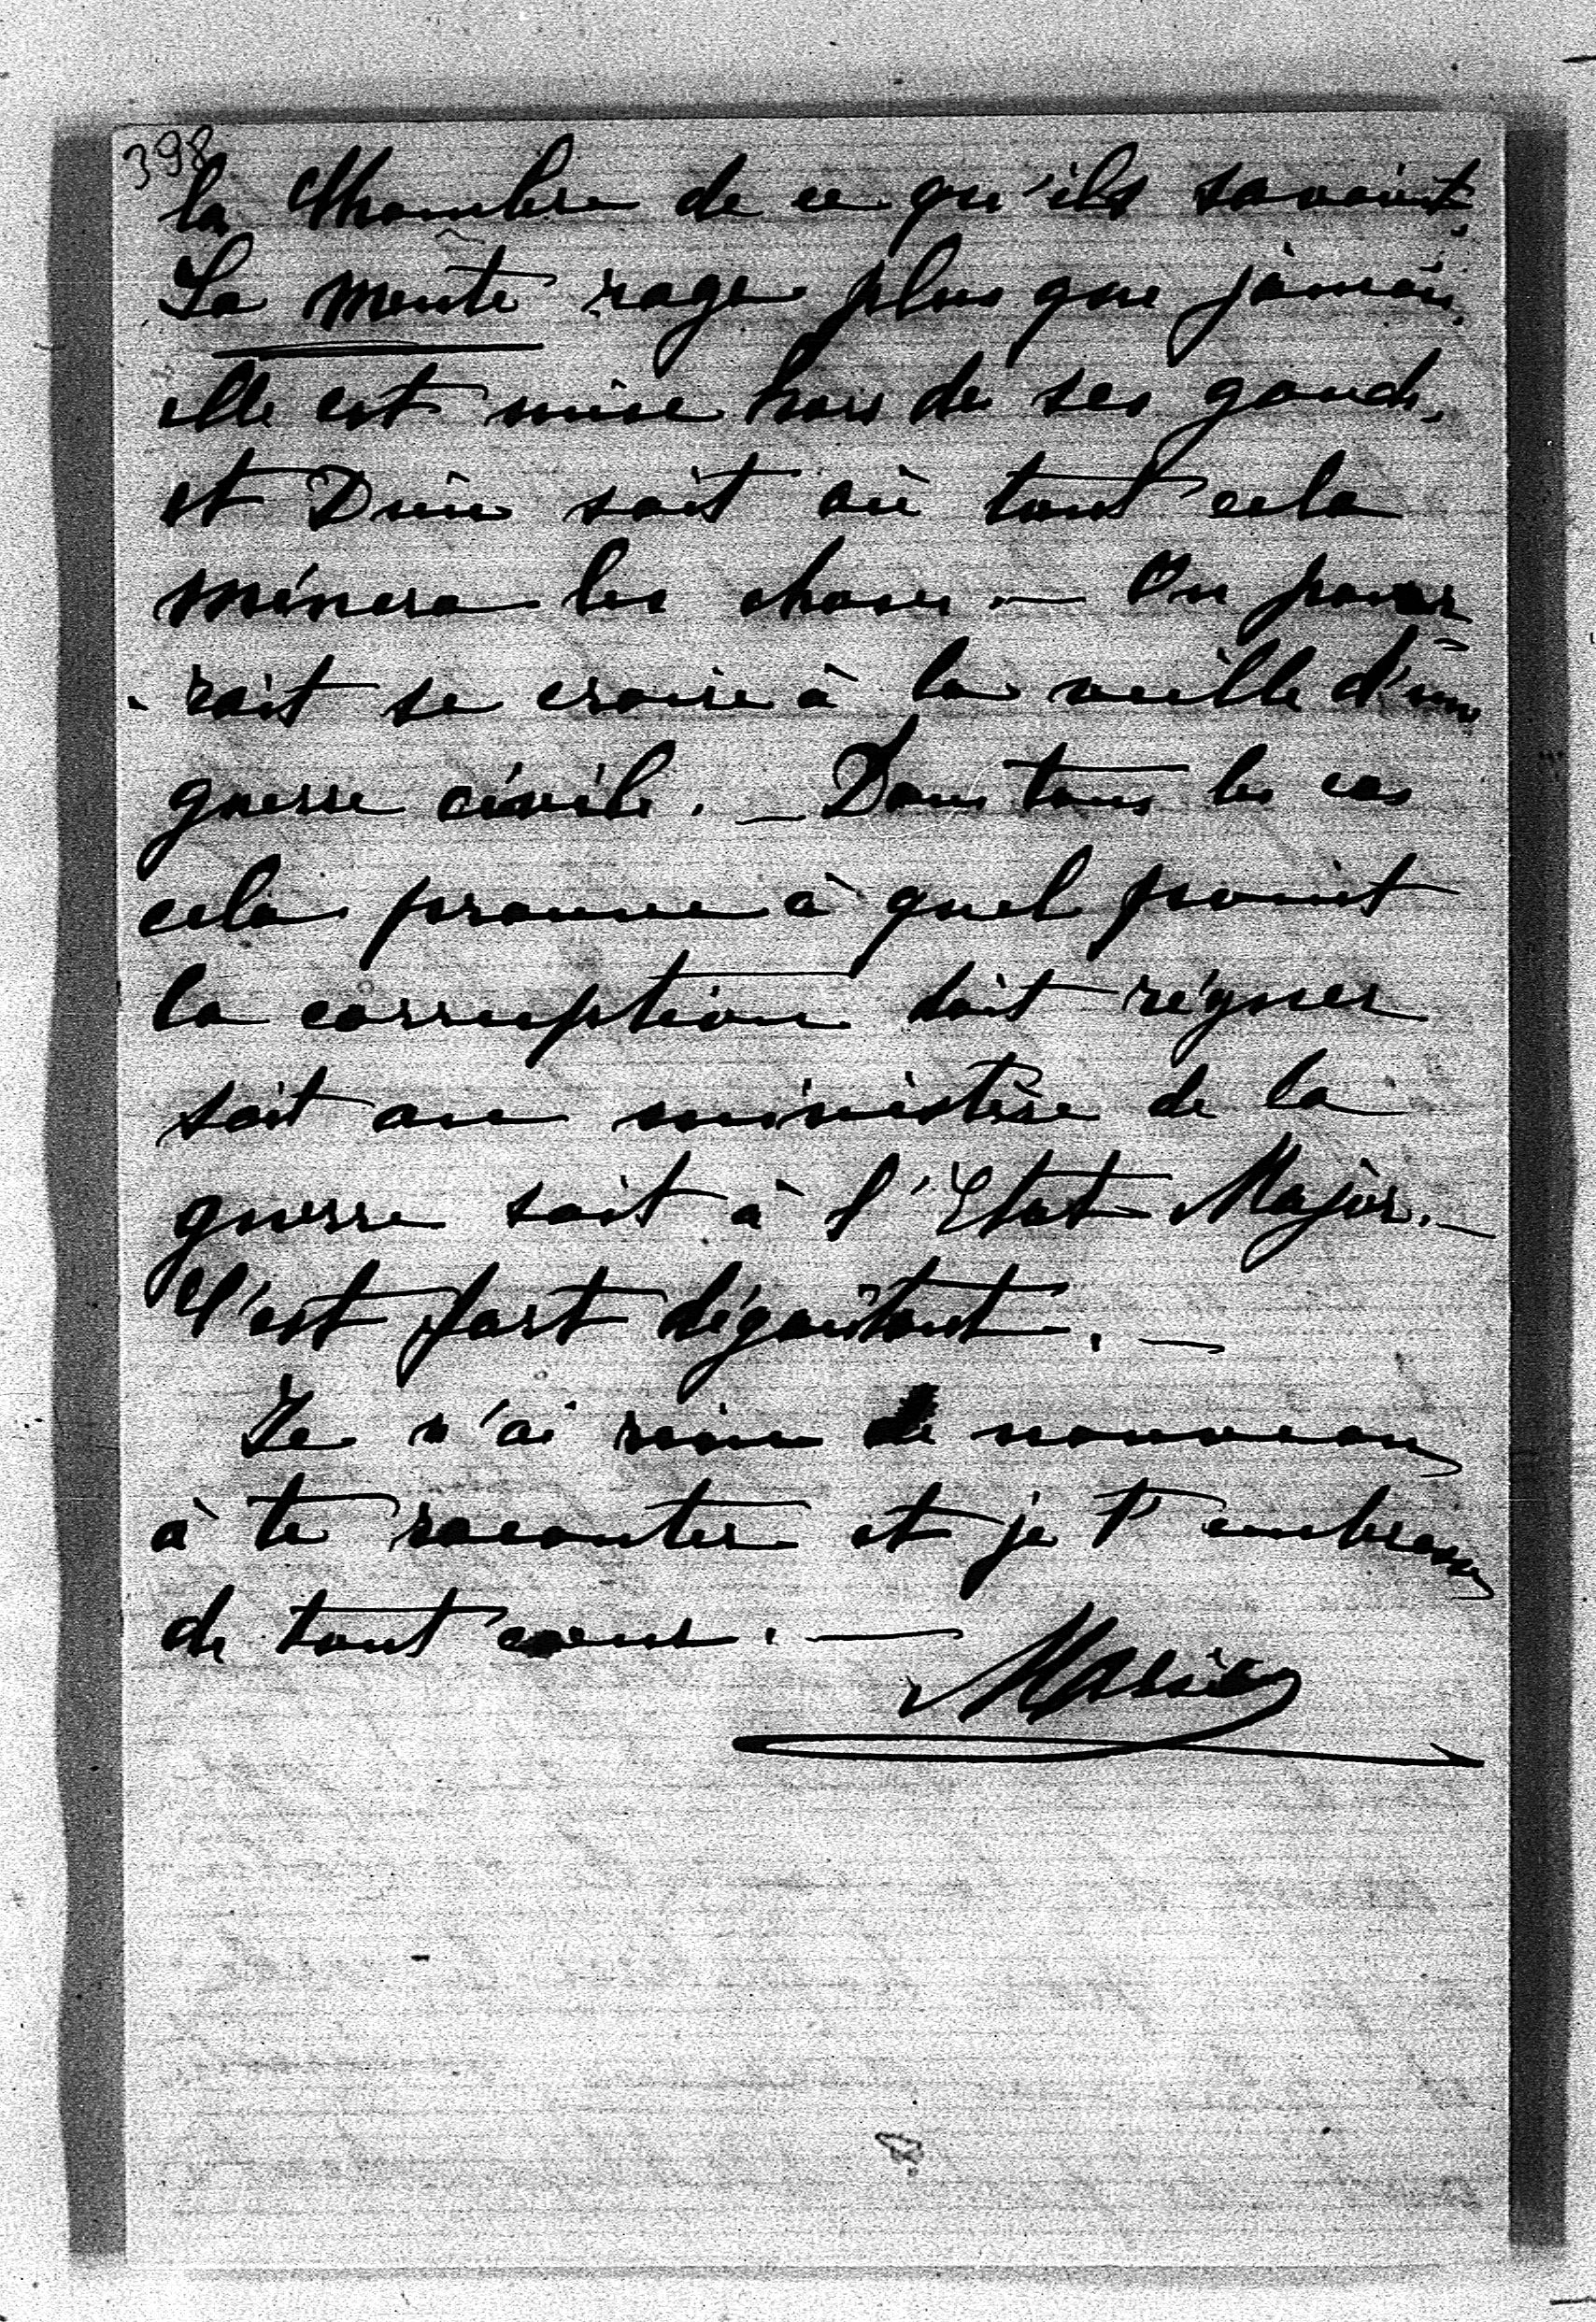 398
la Chambre de ce qu'ils savaient.
La meute rage plus que jamais,
elle est mise hors de ses gonds,
et Dieu sait où tout cela
mènera les choses. — On pour
- rait se croire à la veille d'une
guerre civile. — Dans tous les cas
cela prouve à quel point
la corruption doit régner
soit au ministère de la
guerre soit à l'Etat Major. —
C'est fort dégoûtant. —
Je n'ai rien de nouveau
à te raconter et je t'embrasse
de tout cœur. —
Marie